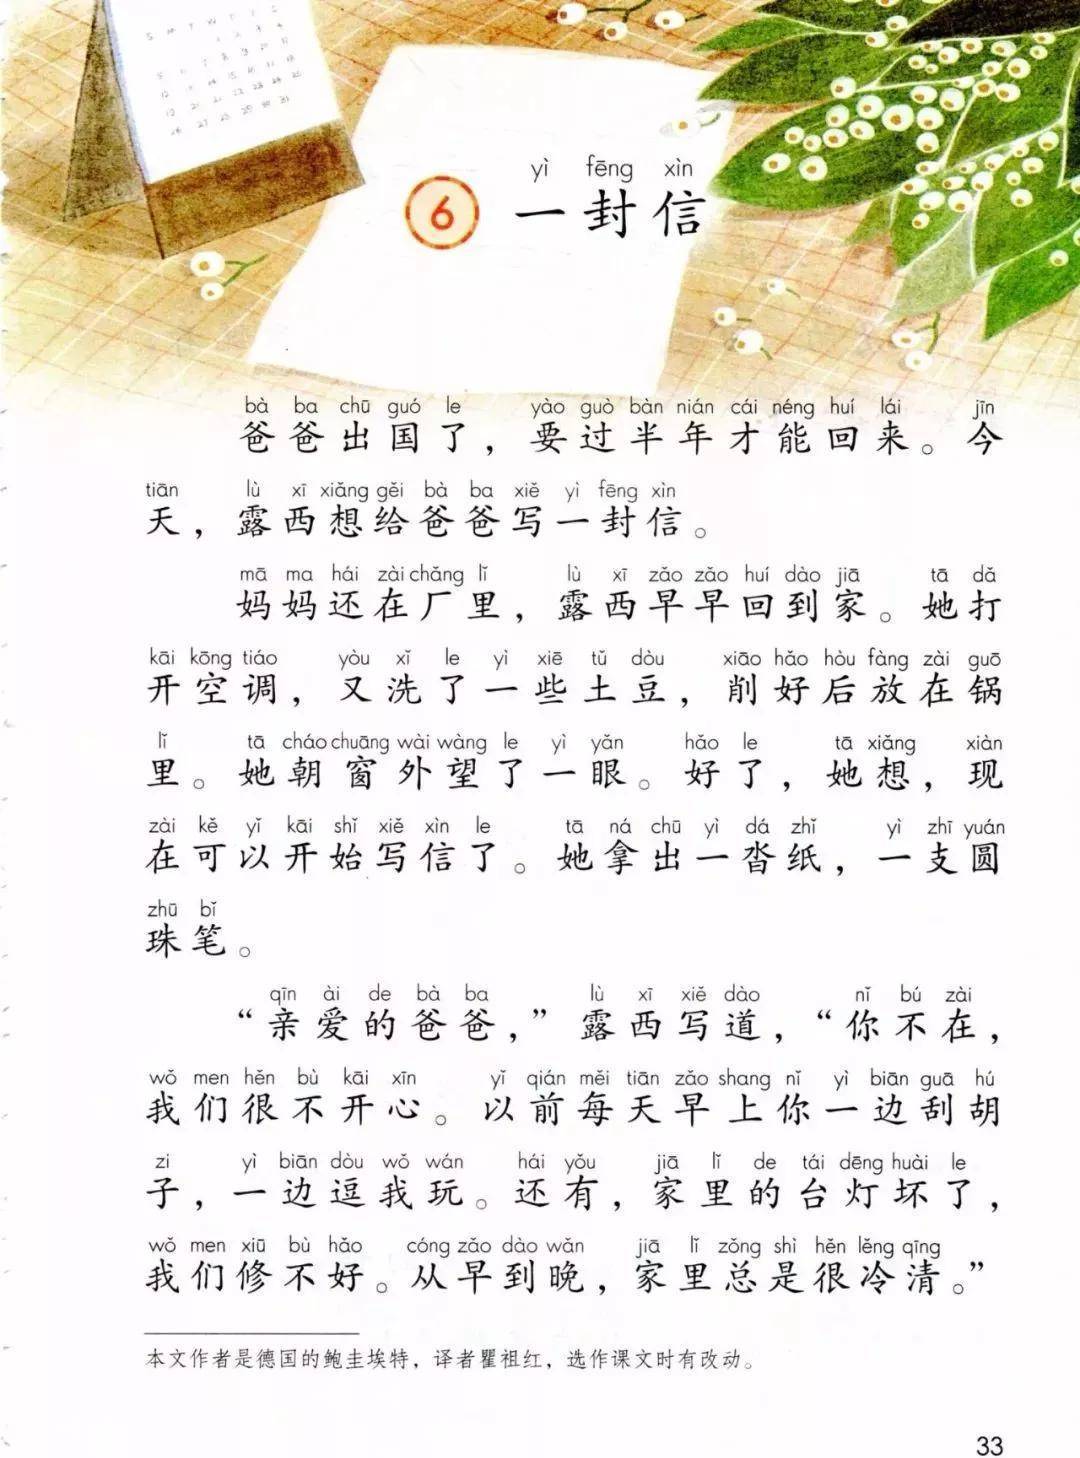 S M T W T F S
yì fēng xìn
6 一封信
bà ba chū guó le yào guò bàn nián cái néng huí lái jīn
爸爸出国了，要过半年才能回来。今
tiān lù xī xiǎng gěi bà ba xiě yì fēng xìn
天，露西想给爸爸写一封信。
mā ma hái zài chǎng lǐ lù xī zǎo zǎo huí dào jiā tā dǎ
妈妈还在厂里，露西早早回到家。她打
kāi kōng tiáo yòu xǐ le yì xiē tǔ dòu xiāo hǎo hòu fàng zài guō
开空调，又洗了一些土豆，削好后放在锅
lǐ tā cháo chuāng wài wàng le yì yǎn hǎo le tā xiǎng xiàn
里。她朝窗外望了一眼。好了，她想，现
zài kě yǐ kāi shǐ xiě xìn le tā ná chū yì dá zhǐ yì zhī yuán
在可以开始写信了。她拿出一沓纸，一支圆
zhū bǐ
珠笔。
qīn ài de bà ba lù xī xiě dào nǐ bú zài
“亲爱的爸爸，”露西写道，“你不在，
wǒ men hěn bù kāi xīn yǐ qián měi tiān zǎo shang nǐ yì biān guā hú
我们很不开心。以前每天早上你一边刮胡
zi yì biān dòu wǒ wán hái yǒu jiā lǐ de tái dēng huài le
子，一边逗我玩。还有，家里的台灯坏了，
wǒ men xiū bù hǎo cóng zǎo dào wǎn jiā lǐ zǒng shì hěn lěng qīng
我们修不好。从早到晚，家里总是很冷清。”
本文作者是德国的鲍圭埃特，译者瞿祖红，选作课文时有改动。
33